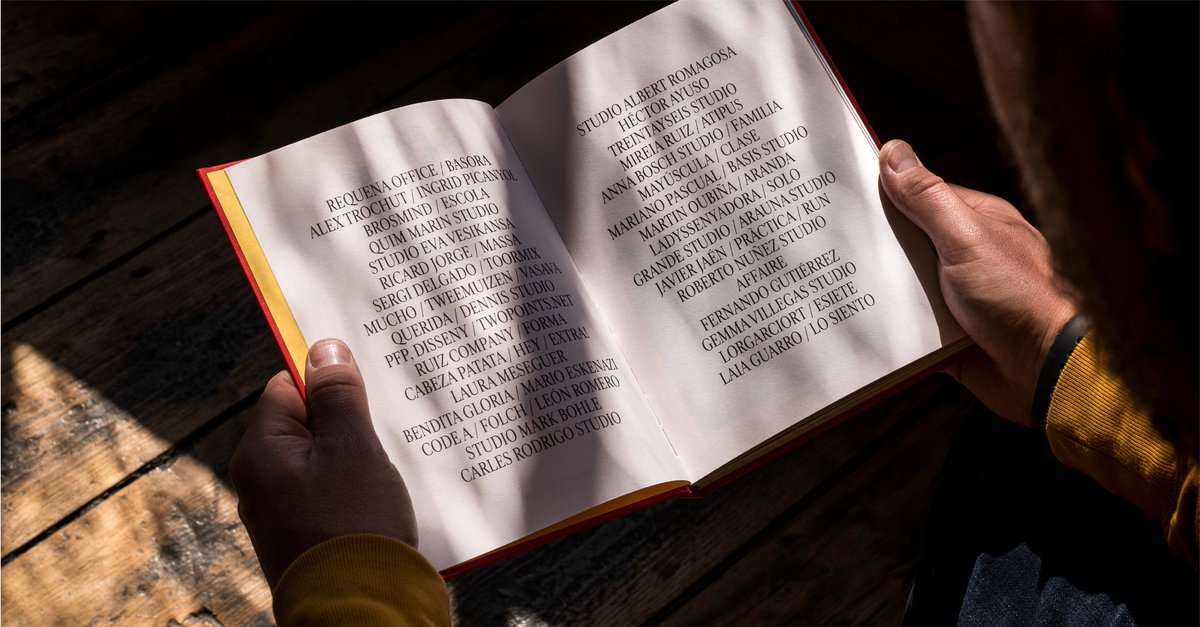 REQUENA OFFICE / BASORA
ALEX TROCHUT / INGRID PICANYOL
BROSMIND / ESCOLA
QUIM MARIN STUDIO
STUDIO EVA VESIKANSA
RICARD JORGE / MASSA
SERGI DELGADO / TOORMIX
MUCHO / TWEEMUIZEN / VASAVA
QUERIDA / DENNIS STUDIO
PFP, DISSENY / TWOPOINTS.NET
RUIZ COMPANY / FORMA
CABEZA PATATA / HEY / EXTRA!
LAURA MESEGUER
BENDITA GLORIA / MARIO ESKENAZI
CODE A / FOLCH / LEÓN ROMERO
STUDIO MARK BOHLE
CARLES RODRIGO STUDIO
STUDIO ALBERT ROMAGOSA
HÉCTOR AYUSO
TREINTAYSEIS STUDIO
MIREIA RUIZ / ATIPUS
ANNA BOSCH STUDIO / FAMILIA
MAYÚSCULA / CLASE
MARIANO PASCUAL / BASIS STUDIO
MARTIN OUBIÑA / ARANDA
LADYSSENYADORA / SOLO
GRANDE STUDIO / ARAUNA STUDIO
JAVIER JAÉN / PRÁCTICA / RUN
ROBERTO NUÑEZ STUDIO
AFFAIRE
FERNANDO GUTIÉRREZ
GEMMA VILLEGAS STUDIO
LORGARCIORT / ESIETE
LAIA GUARRO / LO SIENTO